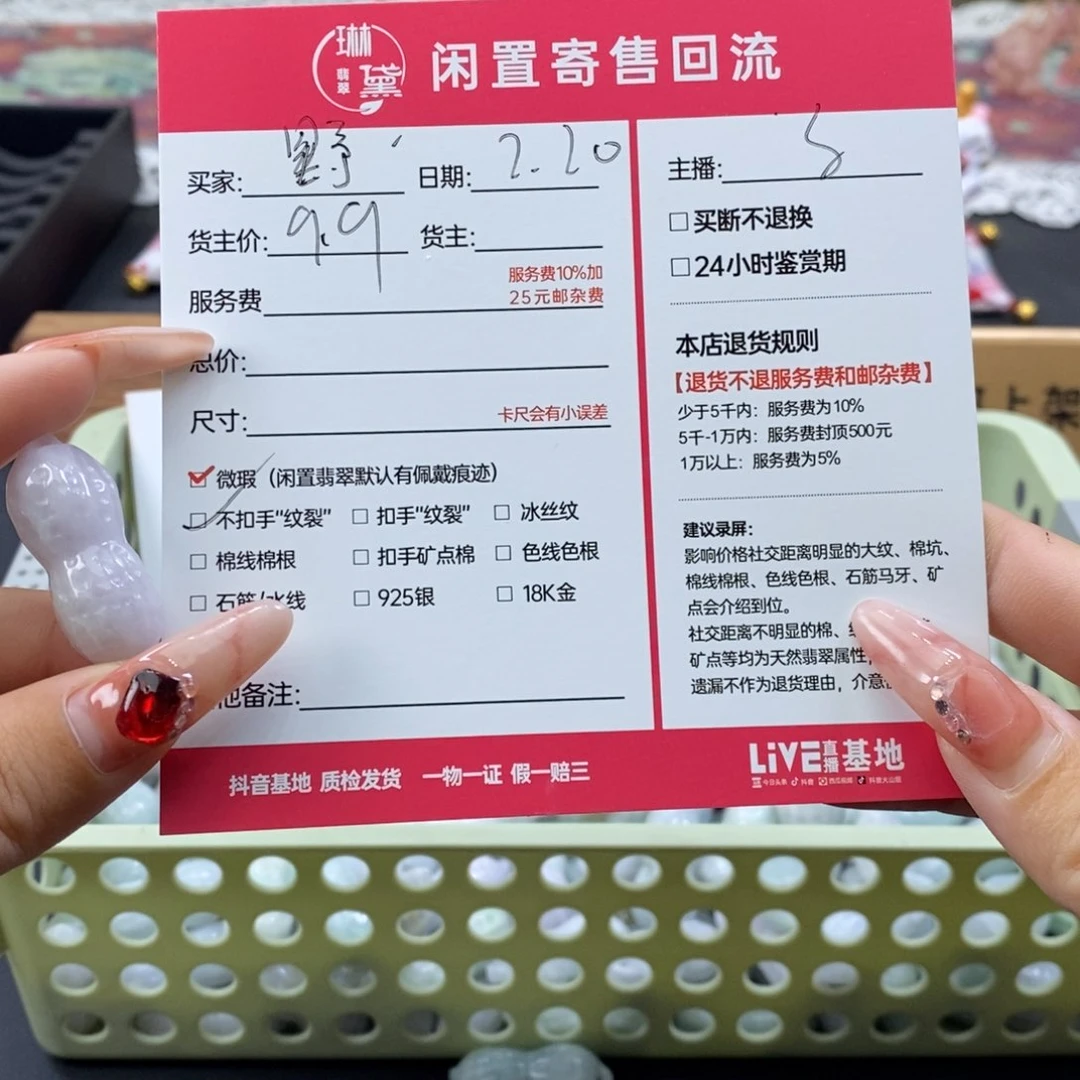 琳黛
翡翠
闲置寄售回流
买家: 野 日期: 2.20
货主价: 9.9 货主:
服务费 服务费10%加
25元邮杂费
总价:
尺寸: 卡尺会有小误差
微瑕（闲置翡翠默认有佩戴痕迹）
不扣手"纹裂" 扣手"纹裂" 冰丝纹
棉线棉根 扣手矿点棉 色线色根
石筋/水线 925银 18K金
他备注:
主播:
买断不退换
24小时鉴赏期
本店退货规则
【退货不退服务费和邮杂费】
少于5千内：服务费为10%
5千-1万内：服务费封顶500元
1万以上：服务费为5%
建议录屏：
影响价格社交距离明显的大纹、棉坑、
棉线棉根、色线色根、石筋马牙、矿
点会介绍到位。
社交距离不明显的棉、
矿点等均为天然翡翠属性，
遗漏不作为退货理由，介意
抖音基地 质检发货 一物一证 假一赔三
LiVE直播基地
今日头条 抖音 西瓜视频 抖音火山版
上架